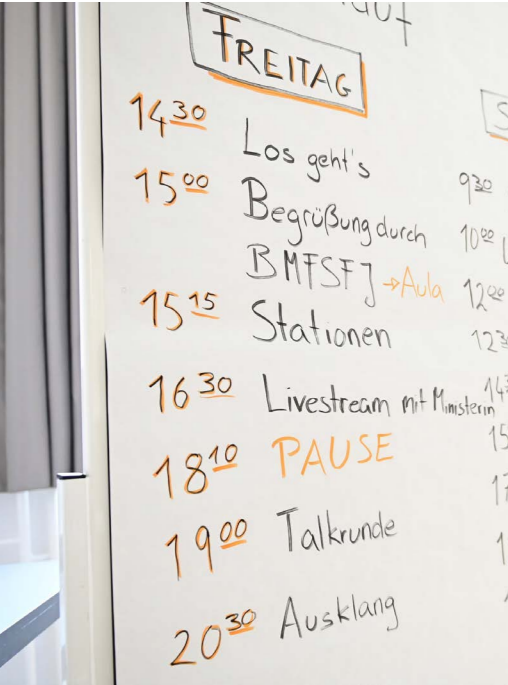 FREITAG
14 30 Los geht's
15 00 Begrüßung durch
BMFSFJ → Aula
15 15 Stationen
16 30 Livestream mit Ministerin
18 10 PAUSE
19 00 Talkrunde
20 30 Ausklang
S
9 30
10 00
12 00